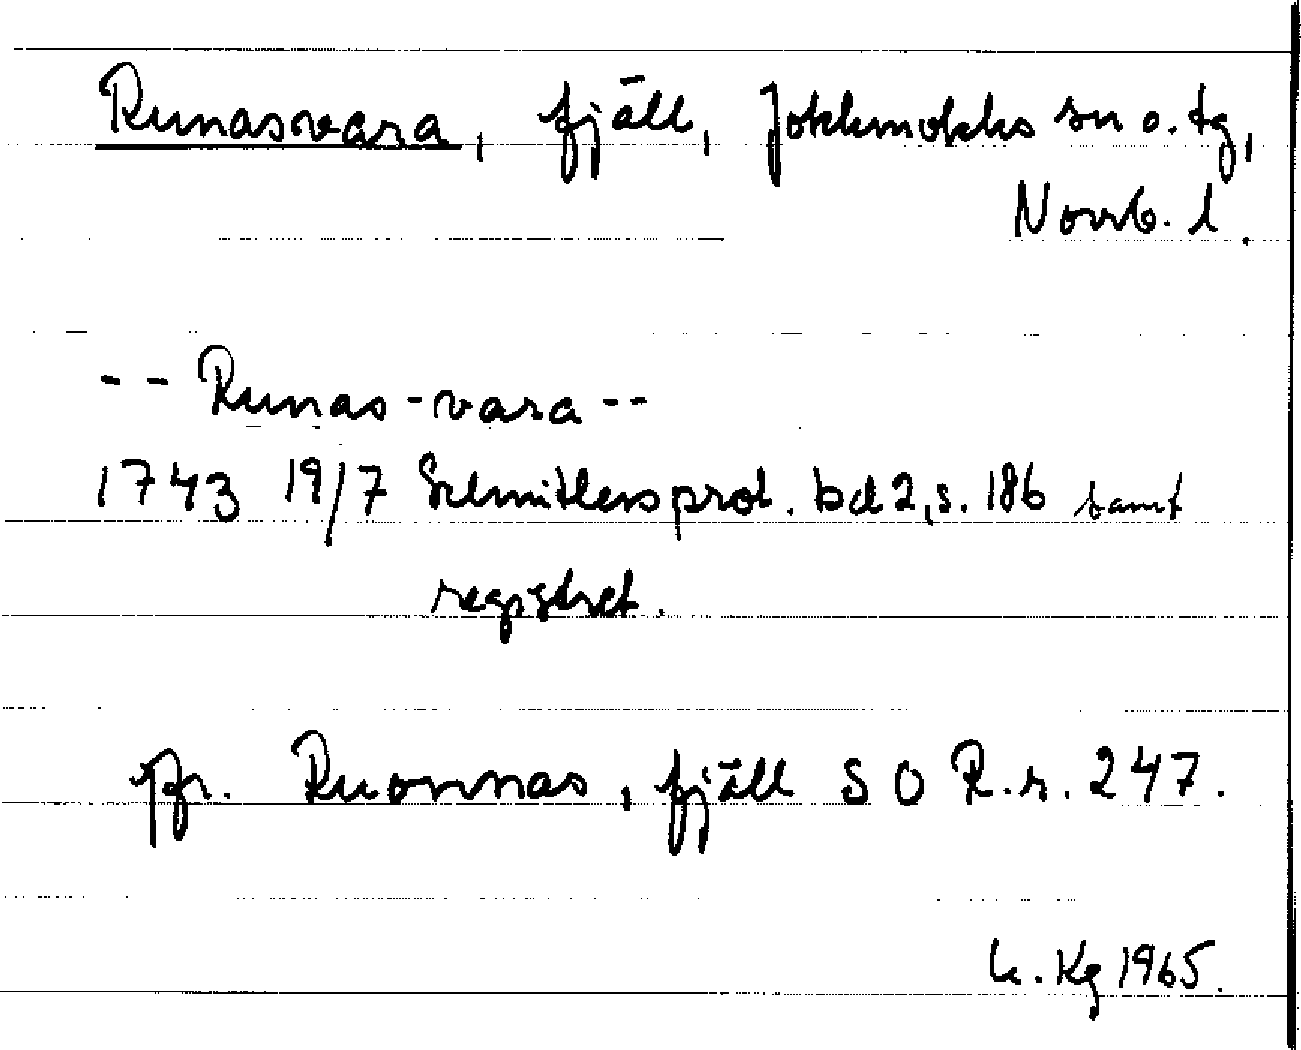 Runasvara, fjäll, Jokkmokks sn o. tg,
Norrb. l.
-- Runas-vara --
1743 19/7 Schnitlers prot. bd 2, s. 186 samt
registret.
Jfr. Ruonnas, fjäll S O R.r. 247.
K. Kg 1965.